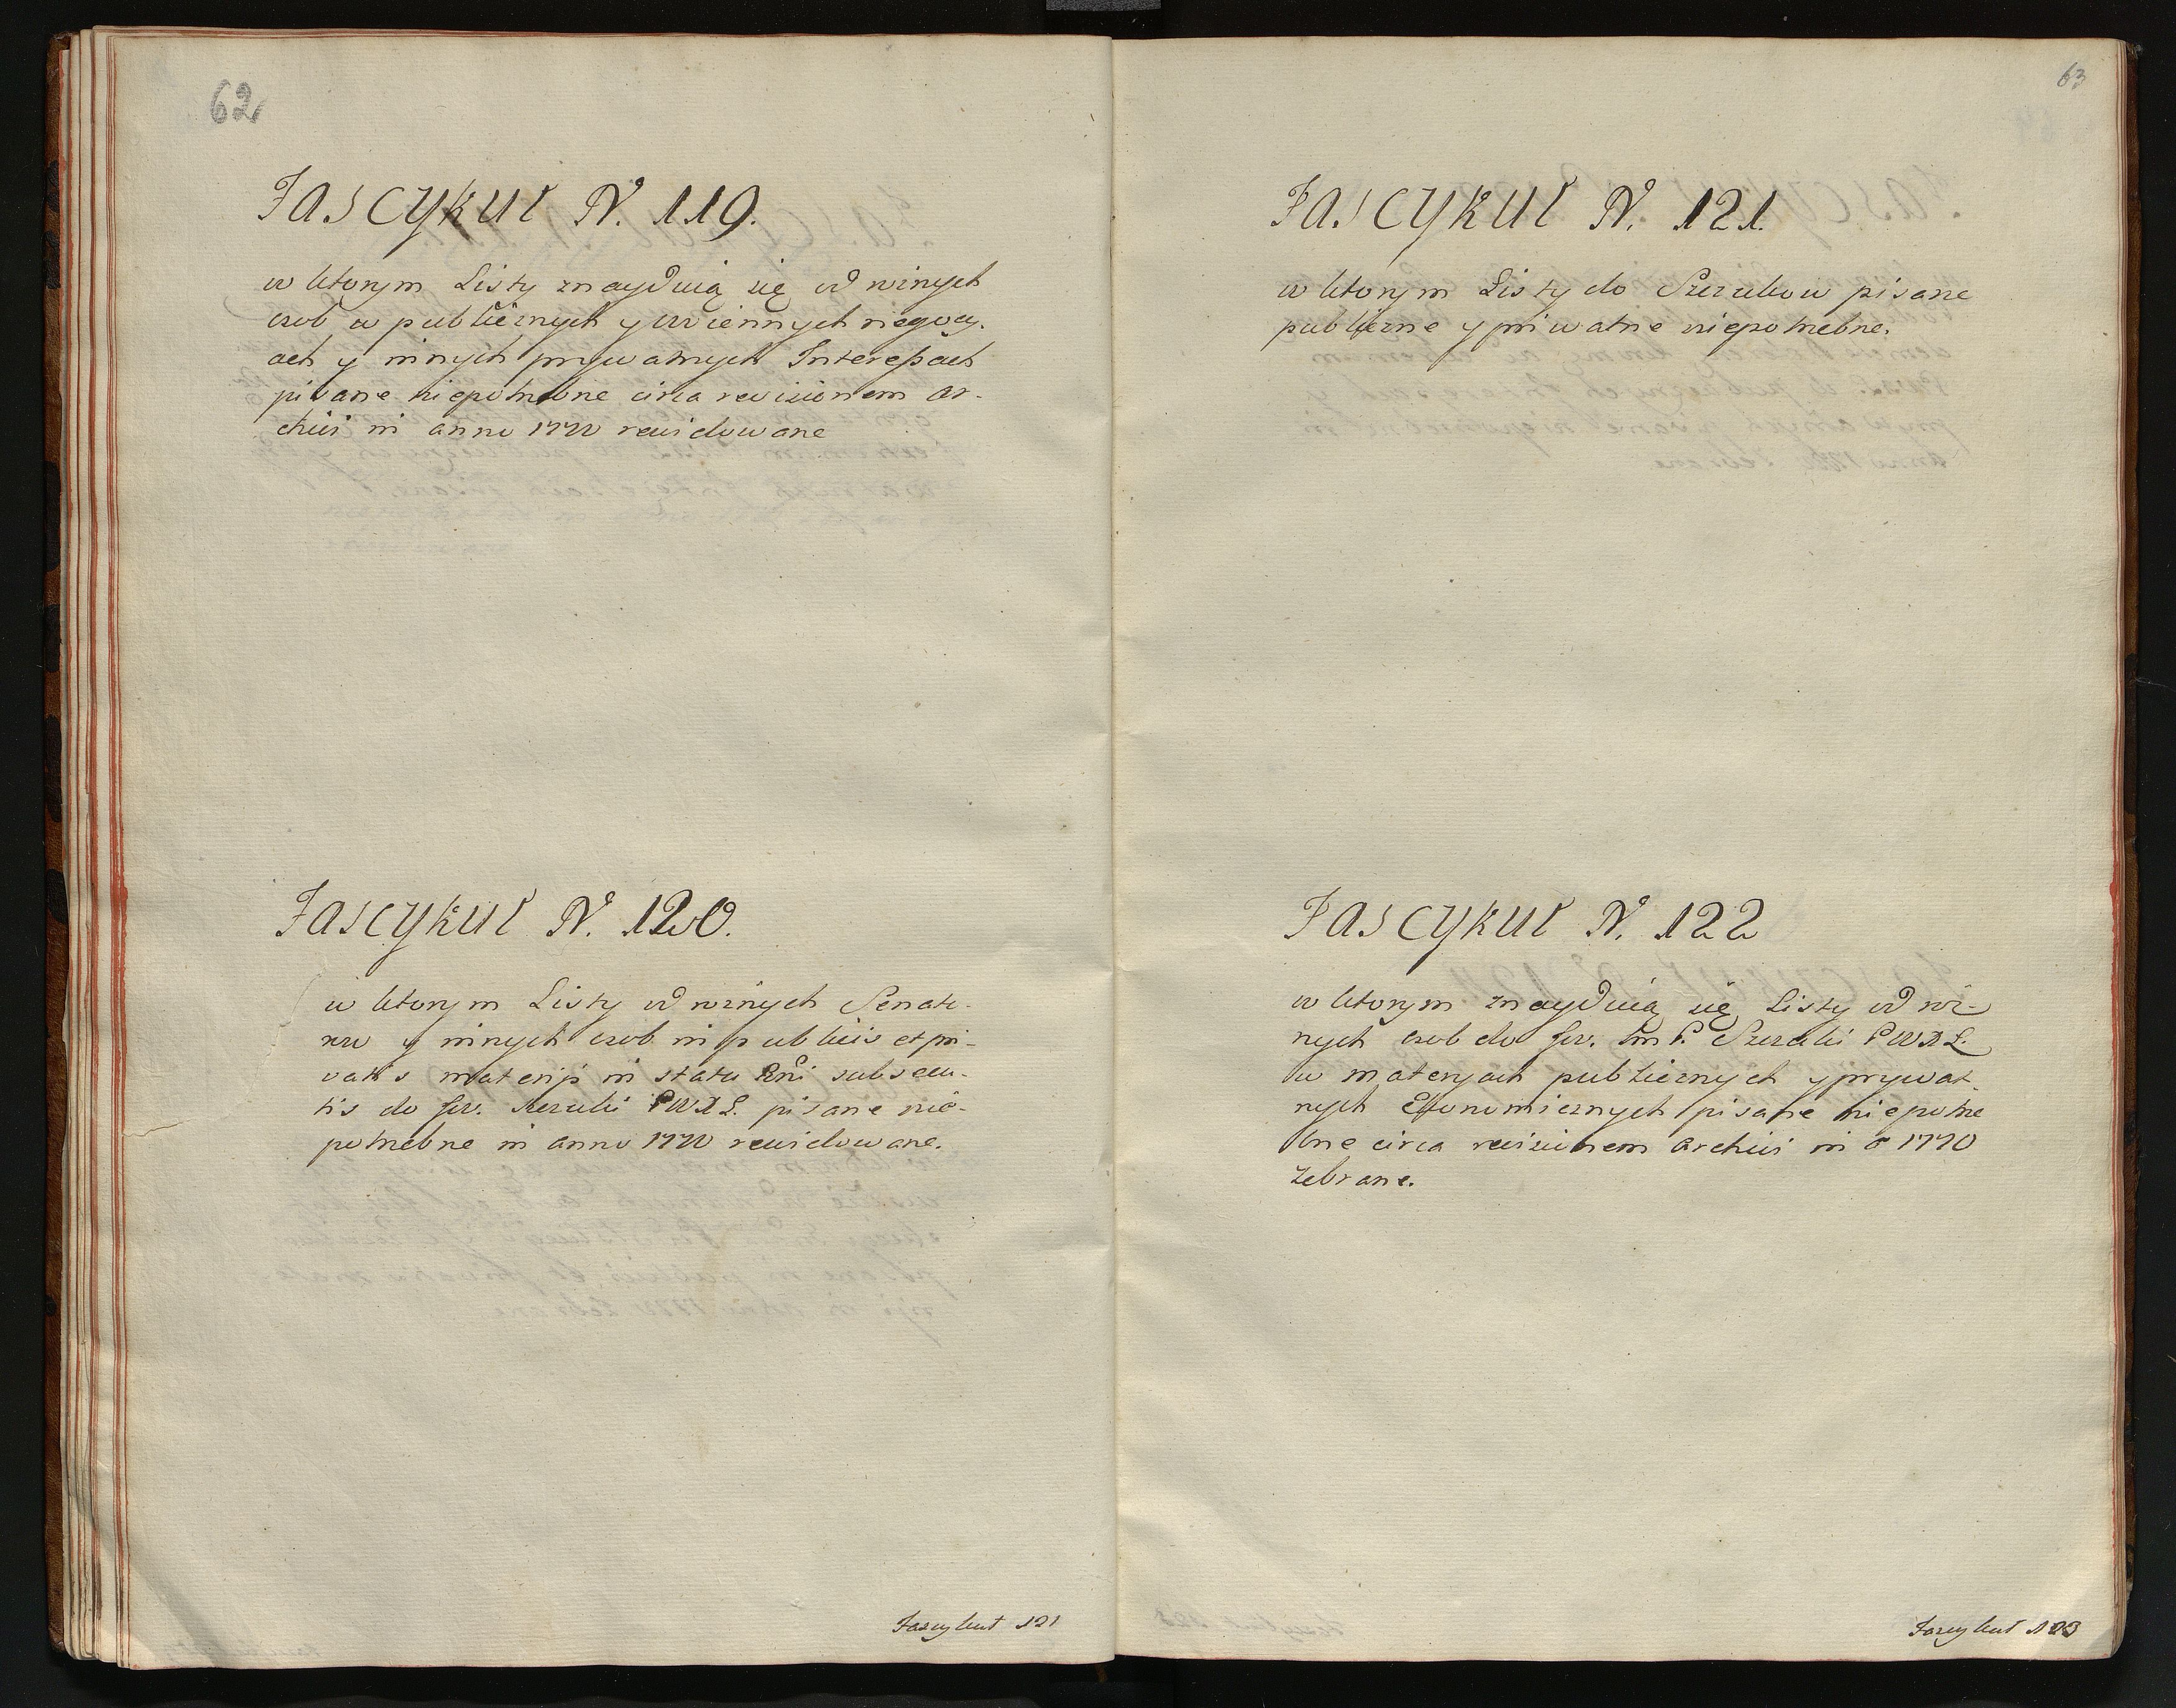 62
Fascykuł N. 119.
w ktorym Listy znayduią się od roznych
osob w publicznych y woiennych negocy-
ach y innych prywatnych Interessach
pisane niepotrzebne circa revisionem Ar-
chivi in anno 1770 rewidowane
Fascykuł N. 120.
w ktorym Listy od roznych Senato-
row y innych osob in publicis et pri-
vatis materijs in statu Rni subsecu-
tis do Jw. Szczuki PWXL. pisane nie-
potrzebne in anno 1770 rewidowane.
Fascykuł 121
63
Fascykuł N. 121.
w ktorym Listy do Szczukow pisane
publiczne y priwatne niepotrzebne.
Fascykuł N. 122
w ktorym znayduią się Listy od roz-
nych osob do Jw. Im P. Szczuki PWXL.
w materyach publicznych y prywat-
nych Ekonomicznych pisane niepotrze
bne circa revisionem Archivi in o 1770
zebrane.
Fascykuł 123